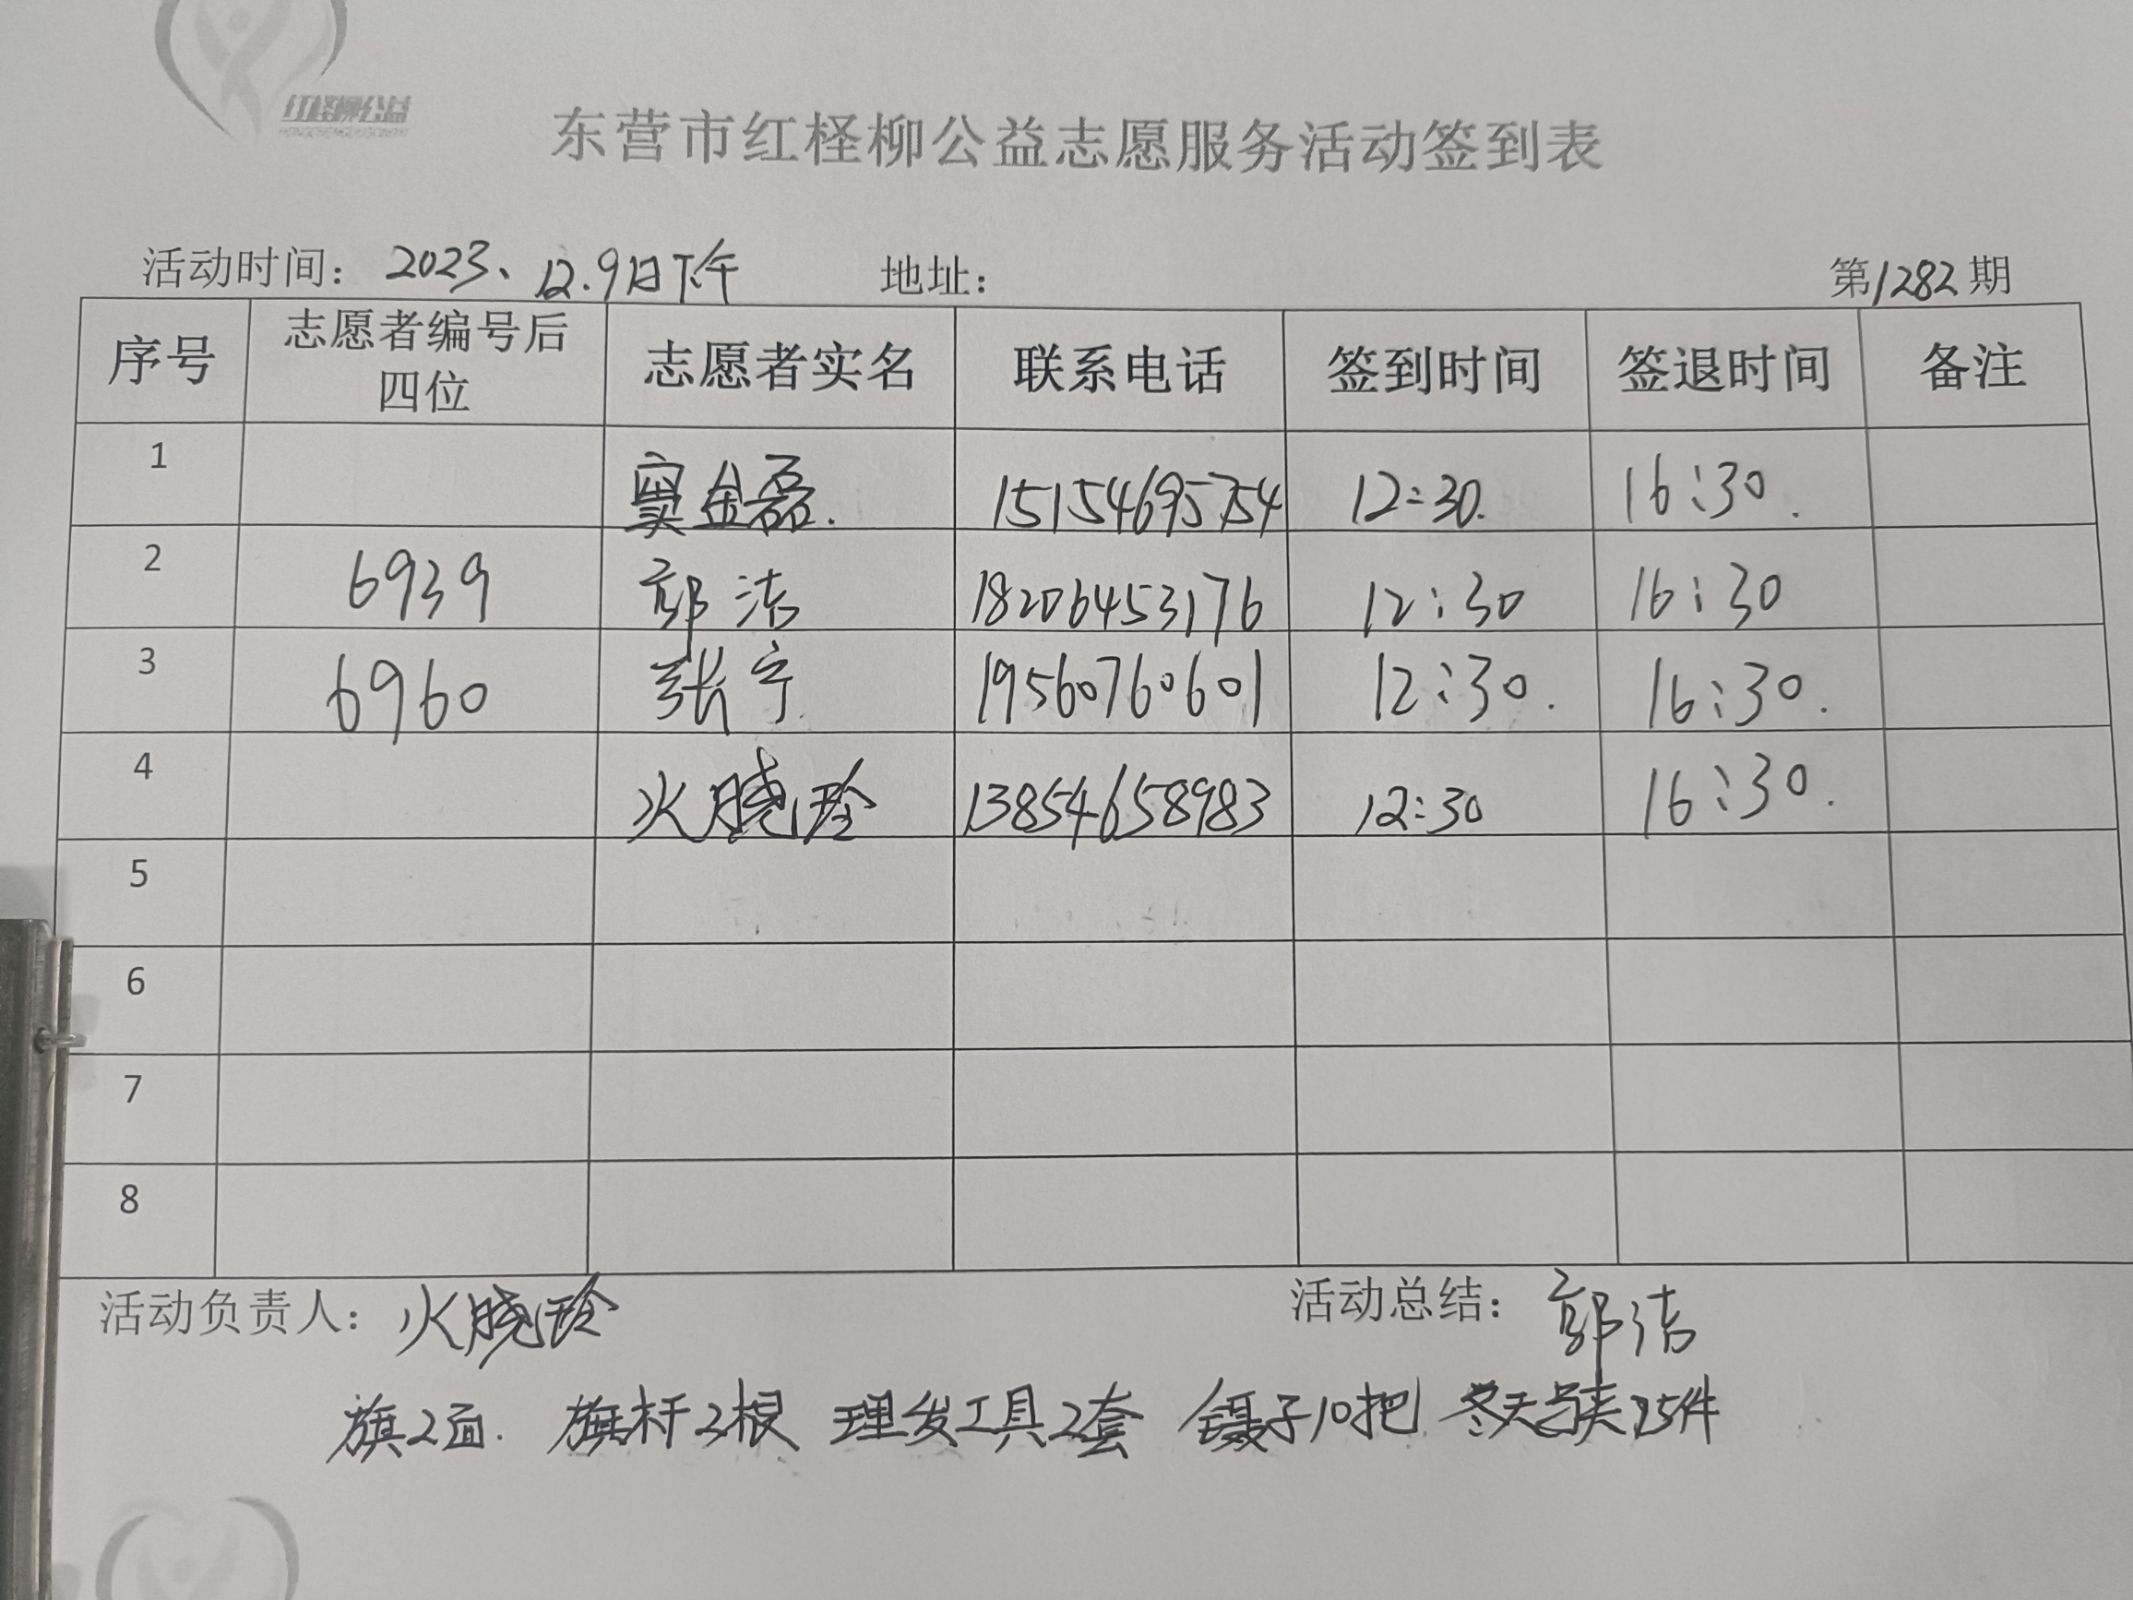 红柽柳公益
东营市红柽柳公益志愿服务活动签到表
活动时间： 2023、12.9日下午 地址： 第1282期
序号 志愿者编号后四位 志愿者实名 联系电话 签到时间 签退时间 备注
1 窦金磊. 15154695754 12:30. 16:30.
2 6939 郭洁 18206453176 12:30 16:30
3 6960 张宁 19560760601 12:30. 16:30.
4 火晓玲 13854658983 12:30 16:30.
5
6
7
8
活动负责人： 火晓玲 活动总结： 郭洁
旗2面. 旗杆2根 理发工具2套 镊子10把 冬天马夹25件